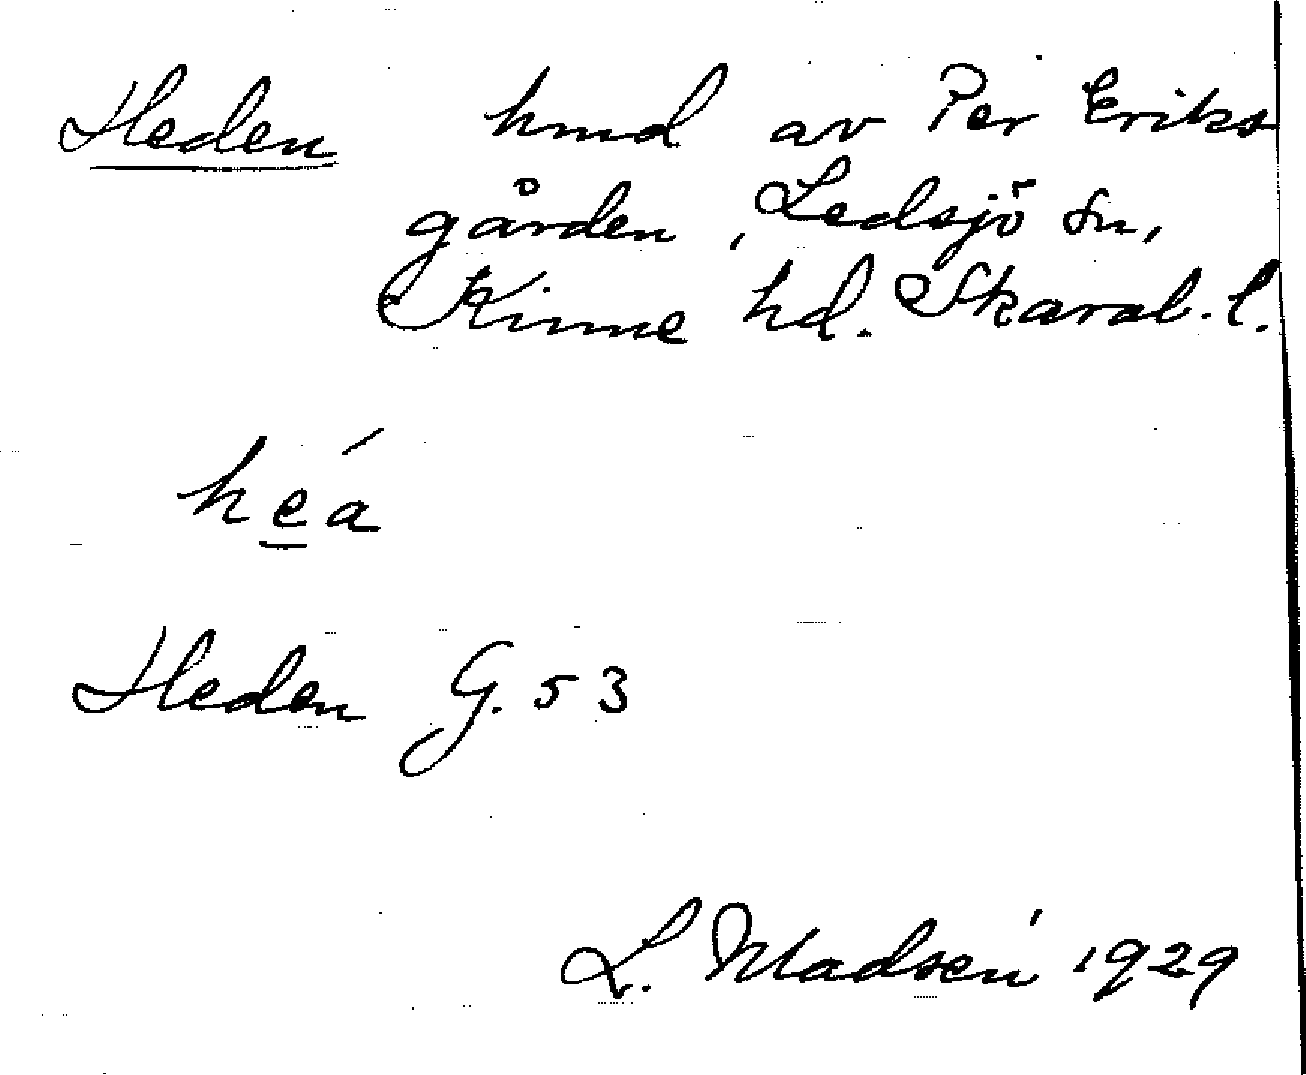 Heden hmd av Per Eriks
gården, Ledsjö sn,
Kinne hd. Skarab. l.
heá
Heden G. 53
L. Madsén 1929